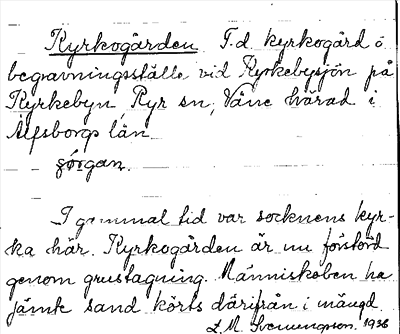 Kyrkogården F.d. kyrkogård o
begravningsställe vid Kyrkebysjön på
Kyrkebyn, Ryr sn, Väne härad i
Älfsborgs län
I gammal tid var socknens kyr-
ka här. Kyrkogården är nu förstörd
genom grustagning. Människoben ha
jämte sand körts därifrån i mängd.
L. M. Svenungsson. 1936